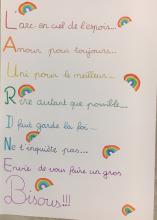 L'arc-en-ciel de l'espoir...
Amour pour toujours...
Uni pour le meilleur...
Rire autant que possible...
Il faut garde la foi...
Ne t'inquiète pas...
Envie de vous faire un gros
Bisous!!!